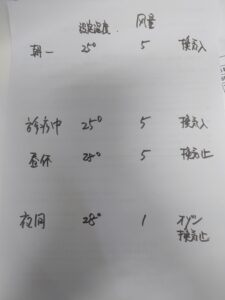 設定温度 風量
朝一 25° 5 換気入
診療中 25° 5 換気入
昼休 28° 5 換気止
夜間 28° 1 オゾン
換気止